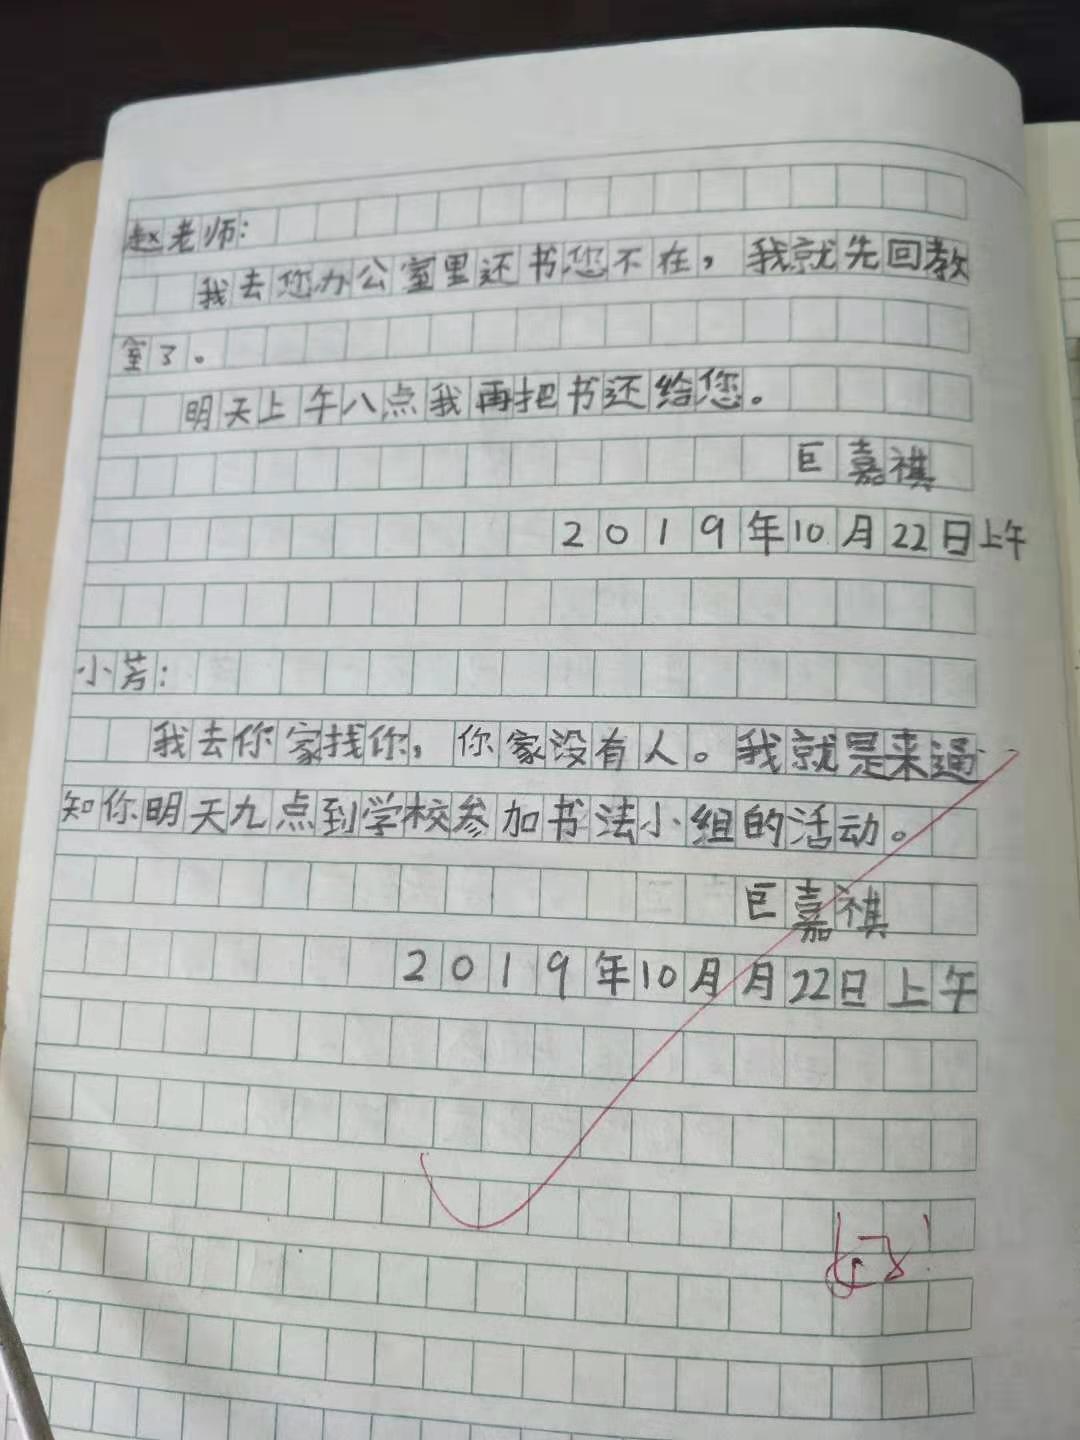 赵老师：
我去您办公室里还书您不在，我就先回教
室了。
明天上午八点我再把书还给您。
巨嘉祺
2019年10月22日上午
小芳：
我去你家找你，你家没有人。我就是来通
知你明天九点到学校参加书法小组的活动。
巨嘉祺
2019年10月月22日上午